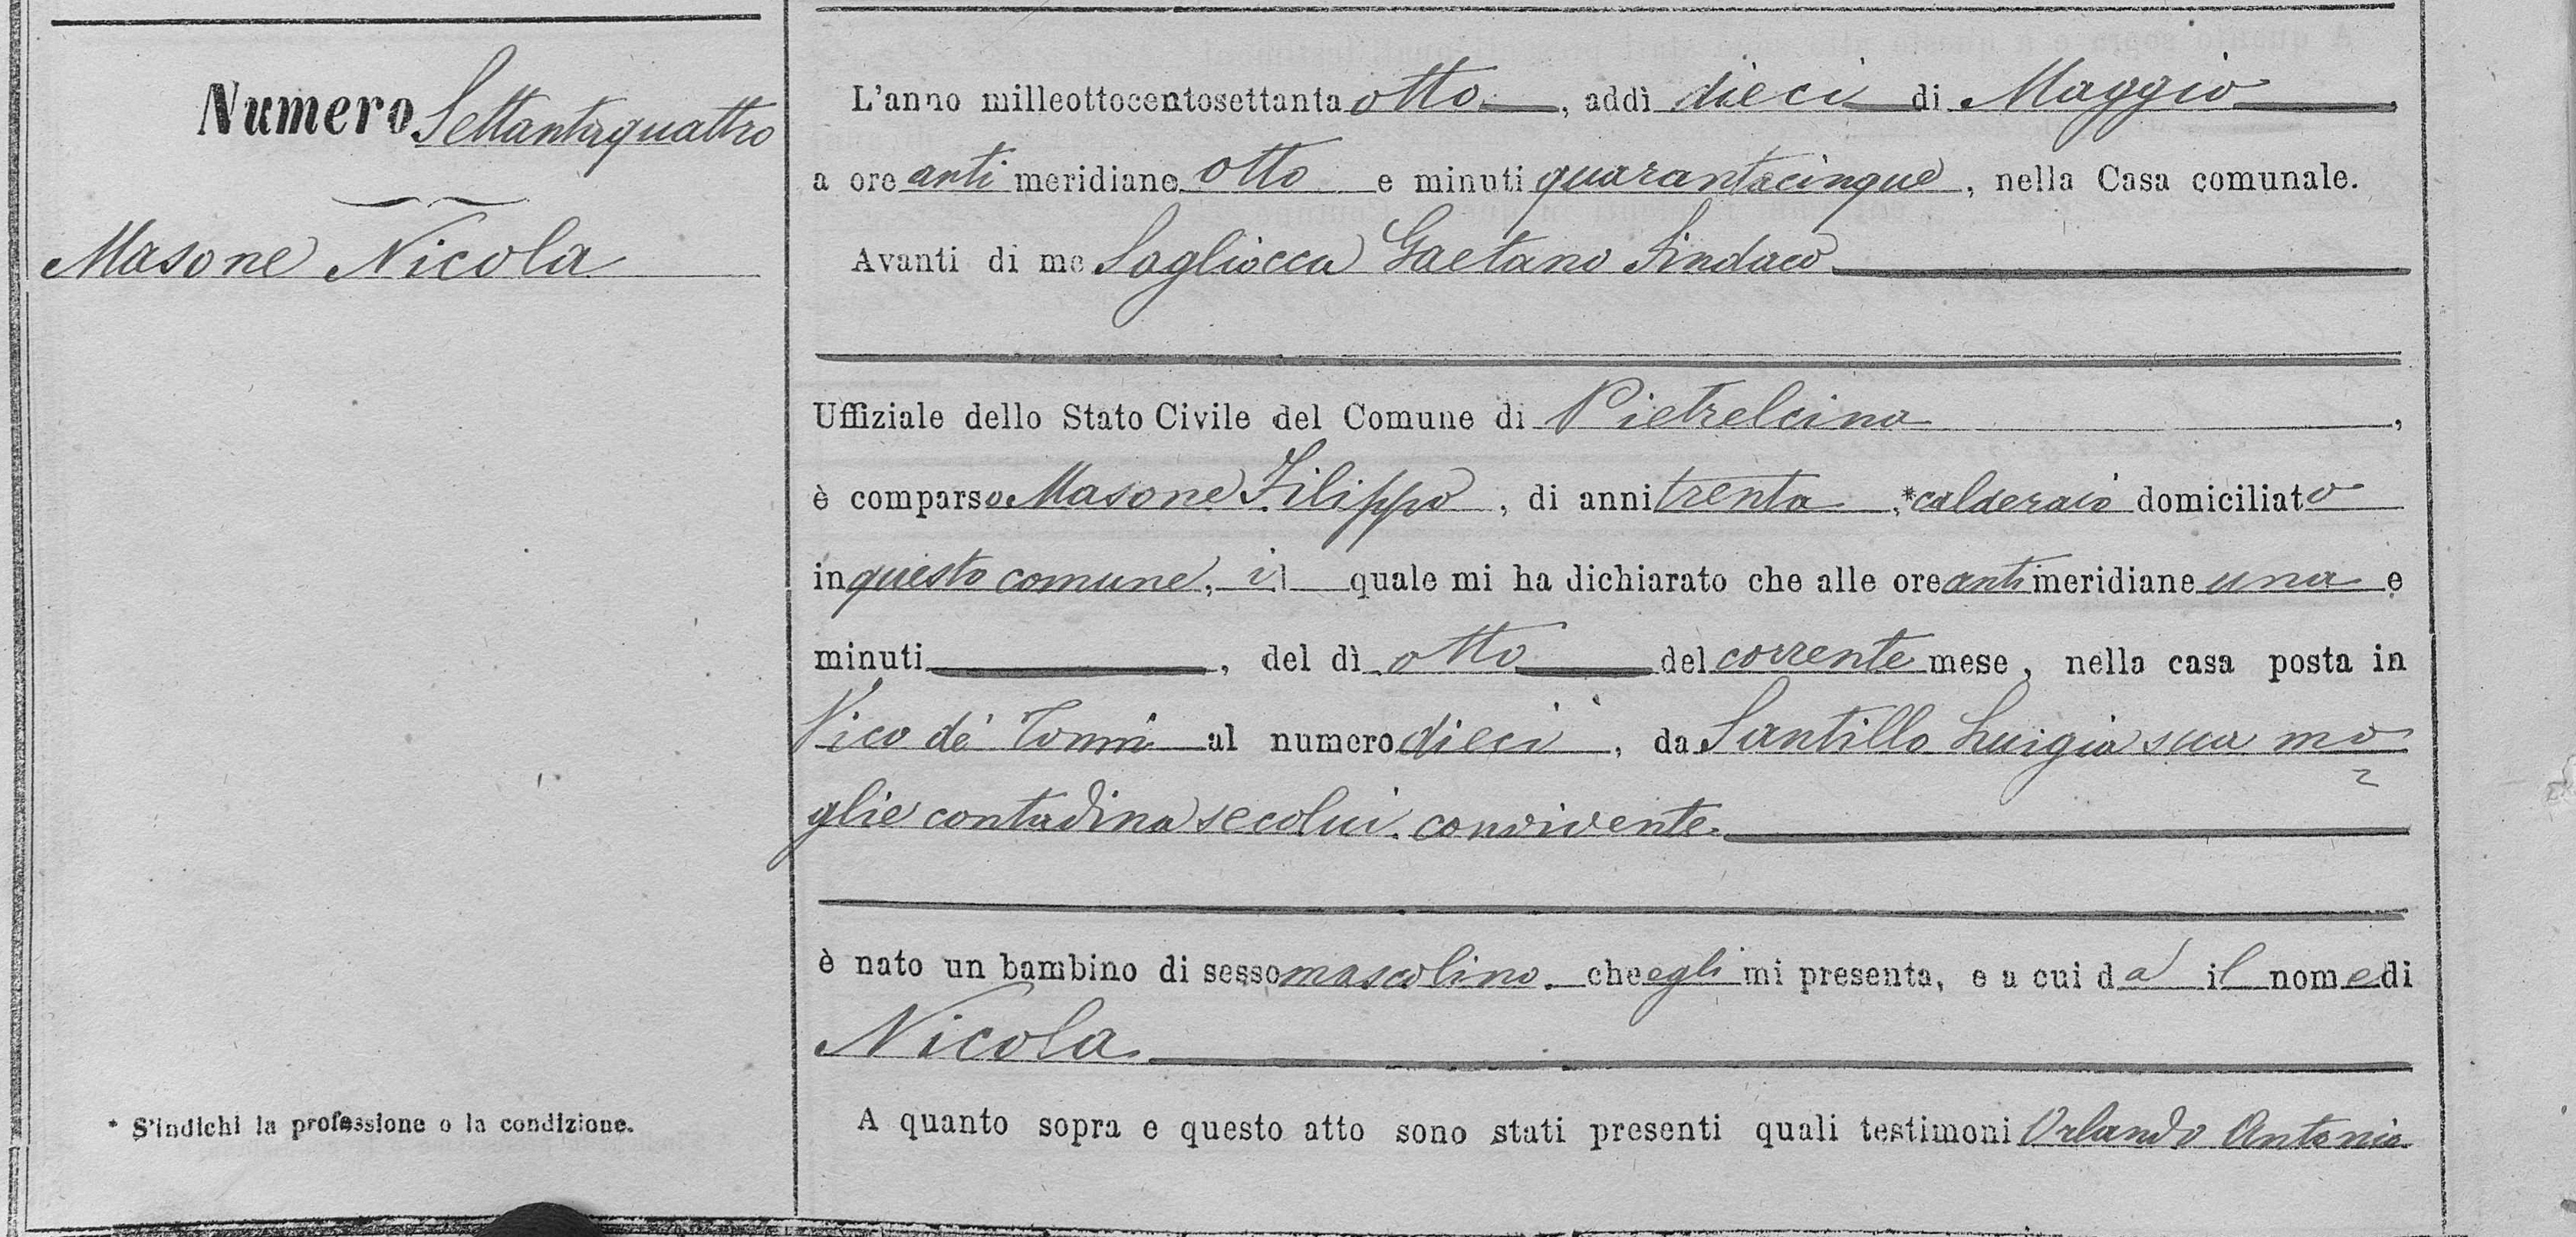 Numero Settantaquattro
Masone Nicola
* S'indichi la professione o la condizione.
L'anno milleottocentosettanta otto, addì dieci di Maggio,
a ore anti meridiane otto e minuti quarantacinque, nella Casa comunale.
Avanti di me Sagliocca Gaetano Sindaco
Uffiziale dello Stato Civile del Comune di Pietrelcina,
è comparso Masone Filippo, di anni trenta, *calderaio domiciliato
in questo comune, il quale mi ha dichiarato che alle ore antimeridiane una e
minuti, del dì otto del corrente mese, nella casa posta in
Vico de' al numero dieci, da Santillo Luigia sua mo
glie contadina secolui convivente.
è nato un bambino di sesso mascolino. che egli mi presenta, e a cui dà il nome di
Nicola.
A quanto sopra e questo atto sono stati presenti quali testimoni Orlando Antonio